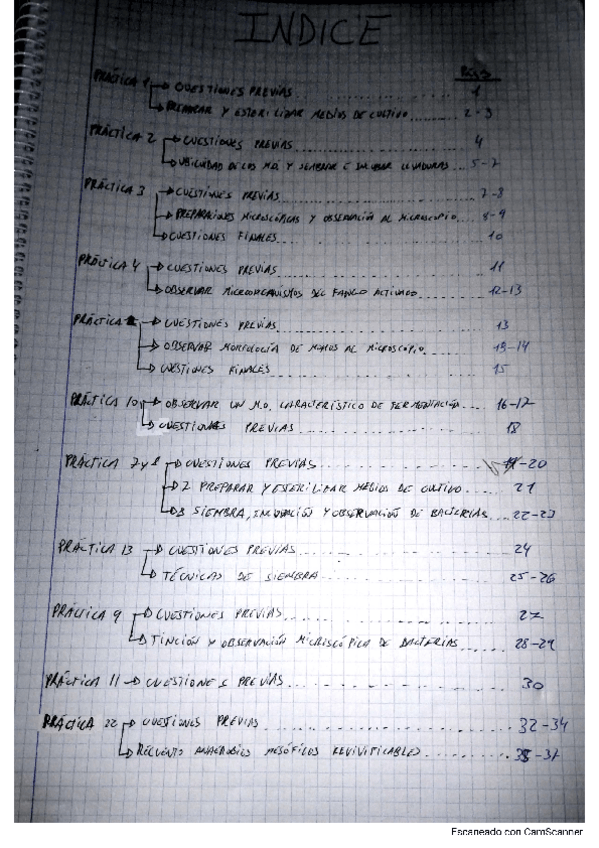 INDICE
PÁGS
PRÁCTICA 1 → CUESTIONES PREVIAS 1
→ PREPARAR Y ESTERILIZAR MEDIOS DE CULTIVO 2-3
PRÁCTICA 2 → CUESTIONES PREVIAS 4
→ UBICUIDAD DE LOS M.O. Y SEMBRAR E INCUBAR LEVADURAS 5-7
PRÁCTICA 3 → CUESTIONES PREVIAS 7-8
→ PREPARACIONES MICROSCÓPICAS Y OBSERVACIÓN AL MICROSCOPIO 8-9
→ CUESTIONES FINALES 10
PRÁCTICA 4 → CUESTIONES PREVIAS 11
→ OBSERVAR MICROORGANISMOS DEL FANGO ACTIVADO 12-13
PRÁCTICA → CUESTIONES PREVIAS 13
→ OBSERVAR MORFOLOGÍA DE MOHOS AL MICROSCOPIO 13-14
→ CUESTIONES FINALES 15
PRÁCTICA 10 → OBSERVAR UN M.O. CARACTERÍSTICO DE FERMENTACIÓN 16-17
→ CUESTIONES PREVIAS 18
PRÁCTICA 7 y 8 → CUESTIONES PREVIAS -20
→ 7 PREPARAR Y ESTERILIZAR MEDIOS DE CULTIVO 21
→ 8 SIEMBRA, INCUBACIÓN Y OBSERVACIÓN DE BACTERIAS 22-23
PRÁCTICA 13 → CUESTIONES PREVIAS 24
→ TÉCNICAS DE SIEMBRA 25-26
PRÁCTICA 9 → CUESTIONES PREVIAS 27
→ TINCIÓN Y OBSERVACIÓN MICROSCÓPICA DE BACTERIAS 28-29
PRÁCTICA 11 → CUESTIONES PREVIAS 30
PRÁCTICA 22 → CUESTIONES PREVIAS 32-34
→ RECUENTO ANAEROBIOS MESÓFILOS REVIVIFICABLES 35-37
Escaneado con CamScanner